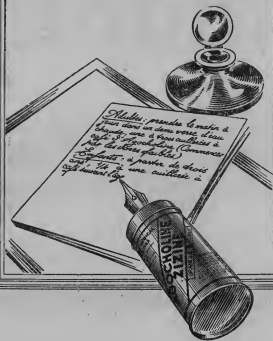 Adultes : prendre le matin à
jeun dans un demi verre d'eau
chaude, une à trois cuillerées à
café de Boocholine (Commencer
par les doses faibles)
Enfants : à partir de trois
ans, 1/4 à une cuillerée à
café suivant l'âge
OCHOLINE
ZIZINE